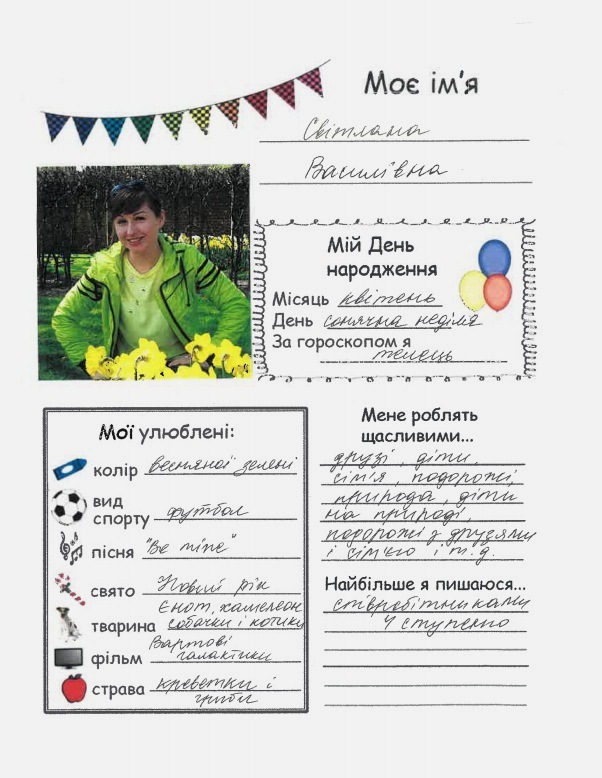 Моє ім'я
Світлана
Василівна
Мій День
народження
Місяць квітень
День сонячна неділя
За гороскопом я
телець
Мої улюблені:
колір весняної зелені
вид
спорту футбол
пісня "Be mine"
свято Новий рік
Єнот, хамелеон
тварина собачки і котики
Вартові
фільм галактики
страва креветки і
гриби
Мене роблять
щасливими...
друзі, діти,
сім'я, подорожі,
природа, діти
на природі,
подорожі з друзями
і сім'єю і т.д.
Найбільше я пишаюся...
співробітниками
4 ступеню